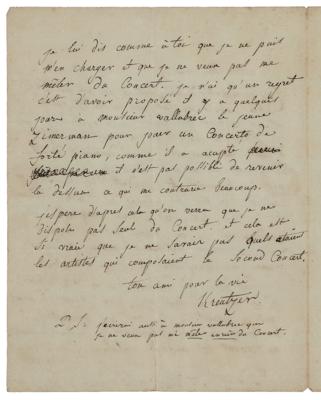 je lui dis comme à toi que je ne puis
m'en charger et que je ne veux pas me
mêler du Concert. je n'ai qu'un regret
c'est d'avoir proposé il y a quelques
jours à monsieur vallobrée le jeune
Zimerman pour jouer un Concerto de
forté piano, comme il a accepté
il n'est pas possible de revenir
la dessus ce qui me contrarie beaucoup.
j'espere d'après cela qu'on verra que je ne
dispose pas seul du Concert et cela est
si vrai que je ne savais pas quels étaient
les artistes qui composaient le second Concert.
ton ami pour la vie
Kreutzer
P.S. j'écrirai aussi à monsieur vallobrée que
je ne veux pas me mêler du Concert.